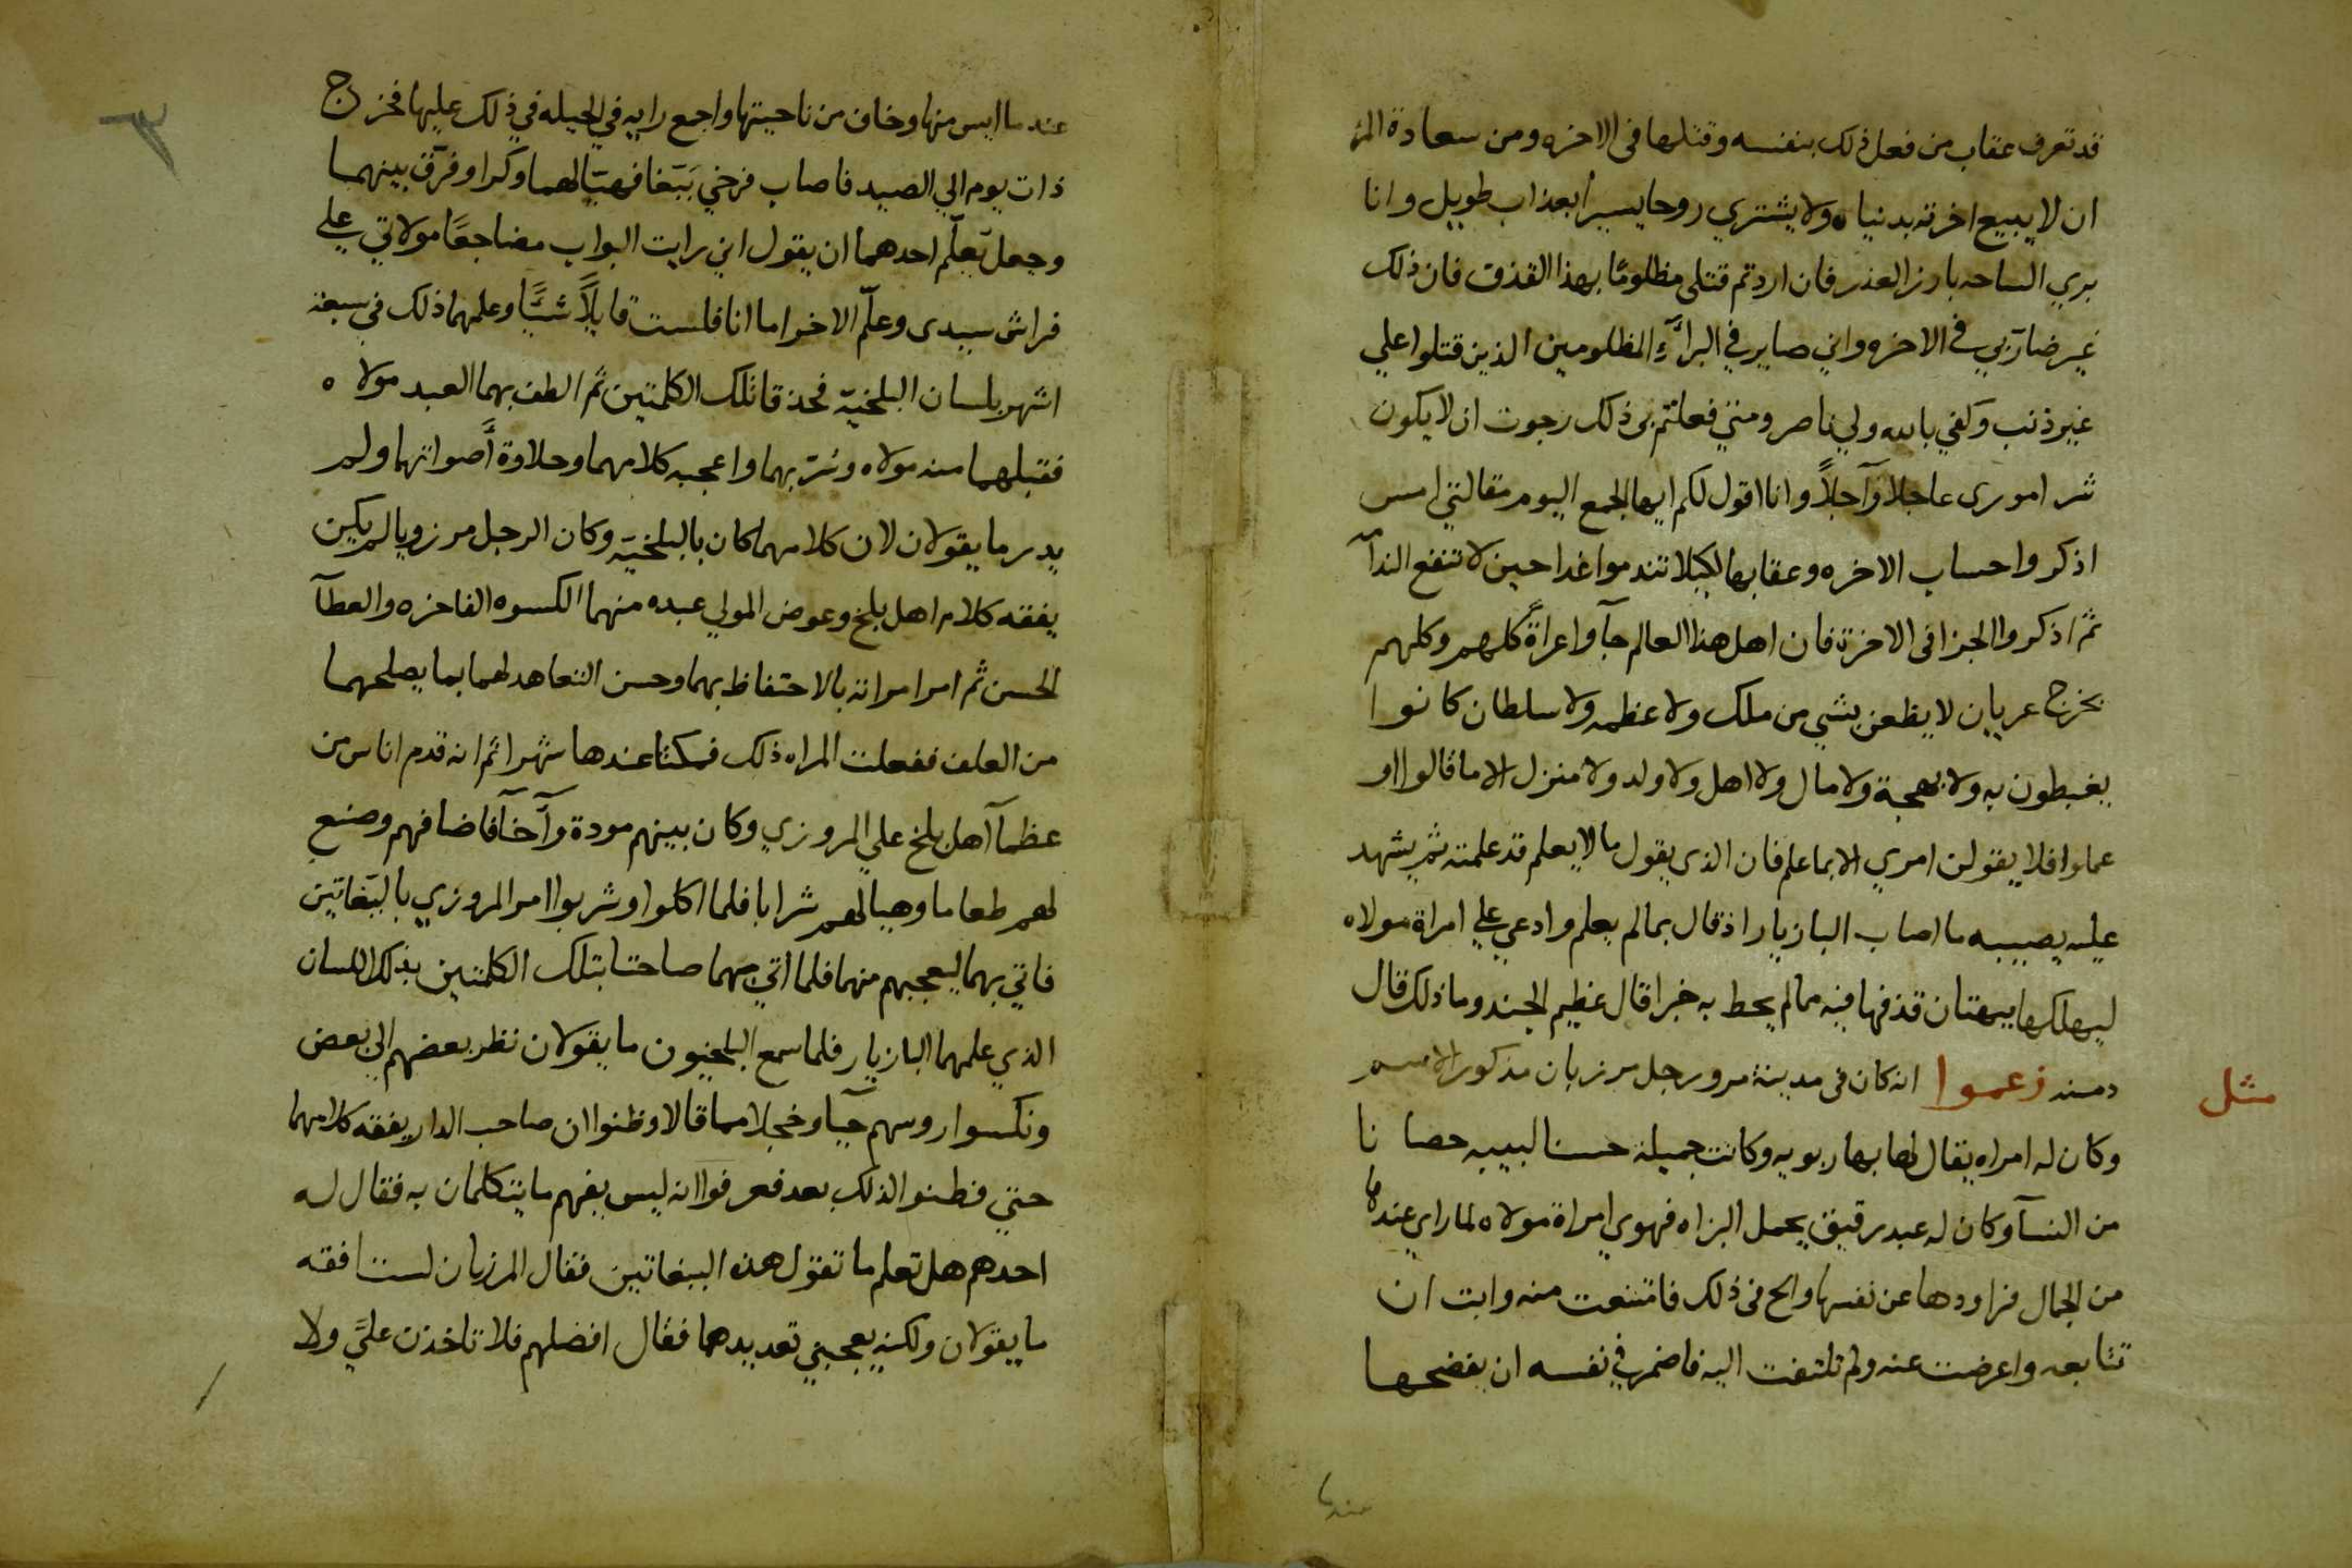 قد تعرف عقاب من فعل ذلك بنفسه وقتلها فى الاخره ومن سعادة المر
ان لا يبيع اخرته بدنياه ولا يشتري روحا يسيرا بعذاب طويل وانا
بري الساحه بارز العذر فان اردتم قتلى مظلومًا بهذا القذف فان ذلك
غير ضار بي في الاخره واني صاير في البرآءِ المظلومين الذين قتلوا علي
غير ذنب وكفي بالله ولي ناصر ومتي فعلتم بى ذلك رجوت ان لا يكون
شر امورى عاجلا وآجلاً وانا اقول لكم ايها الجمع اليوم مقالتي امس
اذكروا حساب الاخره وعقابها لكيلا تندموا غدا حين لا تنفع الندآمه
ثم اذكروا الجزا فى الاخرة فان اهل هذا العالم جآوا عراةً كلهم وكلهم
يخرج عريان لا يظعن بشي من ملك ولا عظمه ولا سلطان كانوا
يغبطون به ولا بهجة ولا مال ولا اهل ولا ولد ولا منزل الا ما قالوا او
عملوا فلا يقولن امري الا بما علم فان الذى يقول ما لا يعلم قد علمته ثم يشهد
عليه يصيبه ما اصاب البازيار اذ قال بما لم يعلم وادعي علي امراة مولاه
ليهلكها ببهتان قذفها فيه مما لم يحط به خبرا قال عظيم الجند وما ذلك قال
دمنه زعموا انه كان فى مدينة مرو رجل مرزبان مذكور الاسم
مثل
وكان له امراه يقال لها بهاربويه وكانت جميلة حسنا لبيبه حصانا
من النسآ وكان له عبد رقيق يحمل البزاه فهوي امراة مولاه لما راي عندها
من الجمال فراودها عن نفسها والح فى ذلك فامتنعت منه وابت ان
تتابعه واعرضت عنه ولم تلتفت اليه فاضمر في نفسه ان يفضحها
عندما ايس منها وخاف من ناحيتها واجمع رايه في الحيله في ذلك عليها فخرج
ذات يوم الي الصيد فاصاب فرخي ببّغا فهيّا لهما وكرا وفرّق بينهما
وجعل يعلّم احدهما ان يقول اني رايت البواب مضاجعًا مولاتي علي
فراش سيدى وعلّم الاخر اما انا فلست قايلاً شيًا وعلمهما ذلك في سبعة
اشهر بلسان البلخيّه فحذقا تلك الكلمتين ثم الطف بهما العبد مولاه
فقبلهما منه مولاه وسرّ بهما واعجبه كلامهما وحلاوة أصواتهما ولم
يدر ما يقولان لان كلامهما كان بالبلخيّه وكان الرجل مرزويا لم يكن
يفقه كلام اهل بلخ وعوض المولي عبده منهما الكسوه الفاخره والعطآ
الحسن ثم امر امراته بالاحتفاظ بهما وحسن التعاهد لهما بما يصلحهما
من العلف ففعلت المراه ذلك فمكثا عندها شهرا ثم انه قدم اناس من
عظمآ آهل بلخ علي المروزي وكان بينهم مودة وآخآ فاضافهم وصنع
لهم طعاما وهيا لهم شرابا فلما اكلوا وشربوا امر المروزي بالببّغاتين
فاتي بهما ليعجبهم منهما فلما اتي بهما صاحتا بتلك الكلمتين بذلك اللسان
الذي علمهما البازيار فلما سمع البلخيون ما يقولان نظر بعضهم الي بعض
ونكسوا روسهم حيآ وخجلا مما قالا وظنوا ان صاحب الدار يفقه كلامهما
حتي فطنوا لذلك بعد فعرفوا انه ليس يفهم ما يتكلمان به فقال له
احدهم هل تعلم ما تقول هذه الببغاتين فقال المرزبان لست افقه
ما يقولان ولكني يعجبني تعديدهما فقال افضلهم فلا تاخذن عليّ ولا